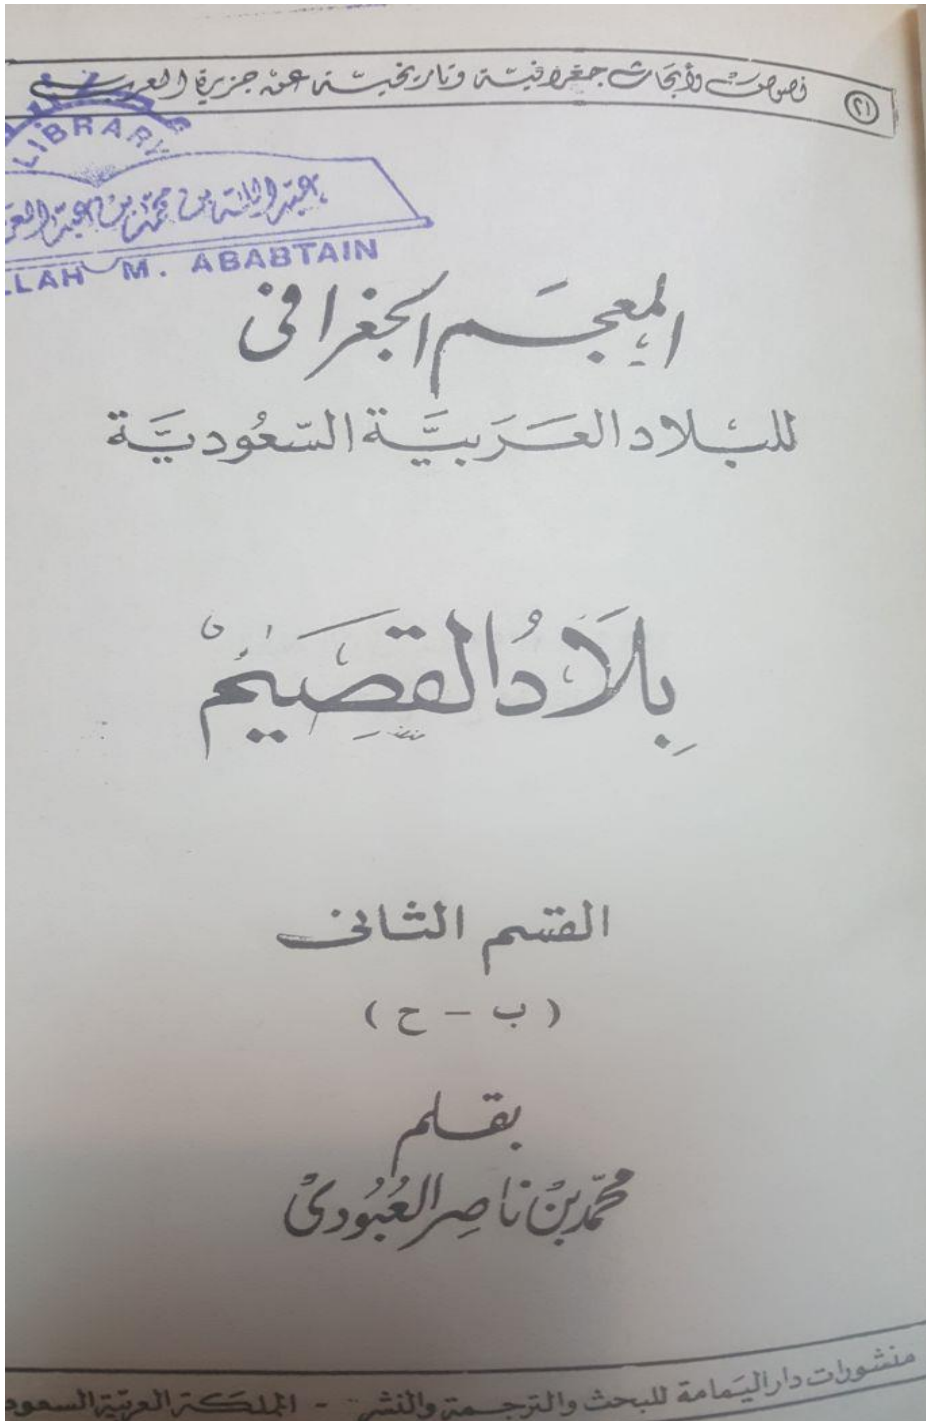 (٢١) نصوص وأبحاث جغرافية وتاريخية عن جزيرة العرب
LIBRARY
عبد الله بن محمد بن عبد
LLAH M. ABABTAIN
المعجم الجغرافي
للبلاد العَرَبيَّة السّعُوديَّة
بِلَادُ القَصِيمُ
القسم الثاني
( ب - ح )
بقلم
محمّد بنْ ناصِر العُبُودي
منشورات دار اليَمامة للبحث والترجمة والنشر - المملكة العربيّة السعود